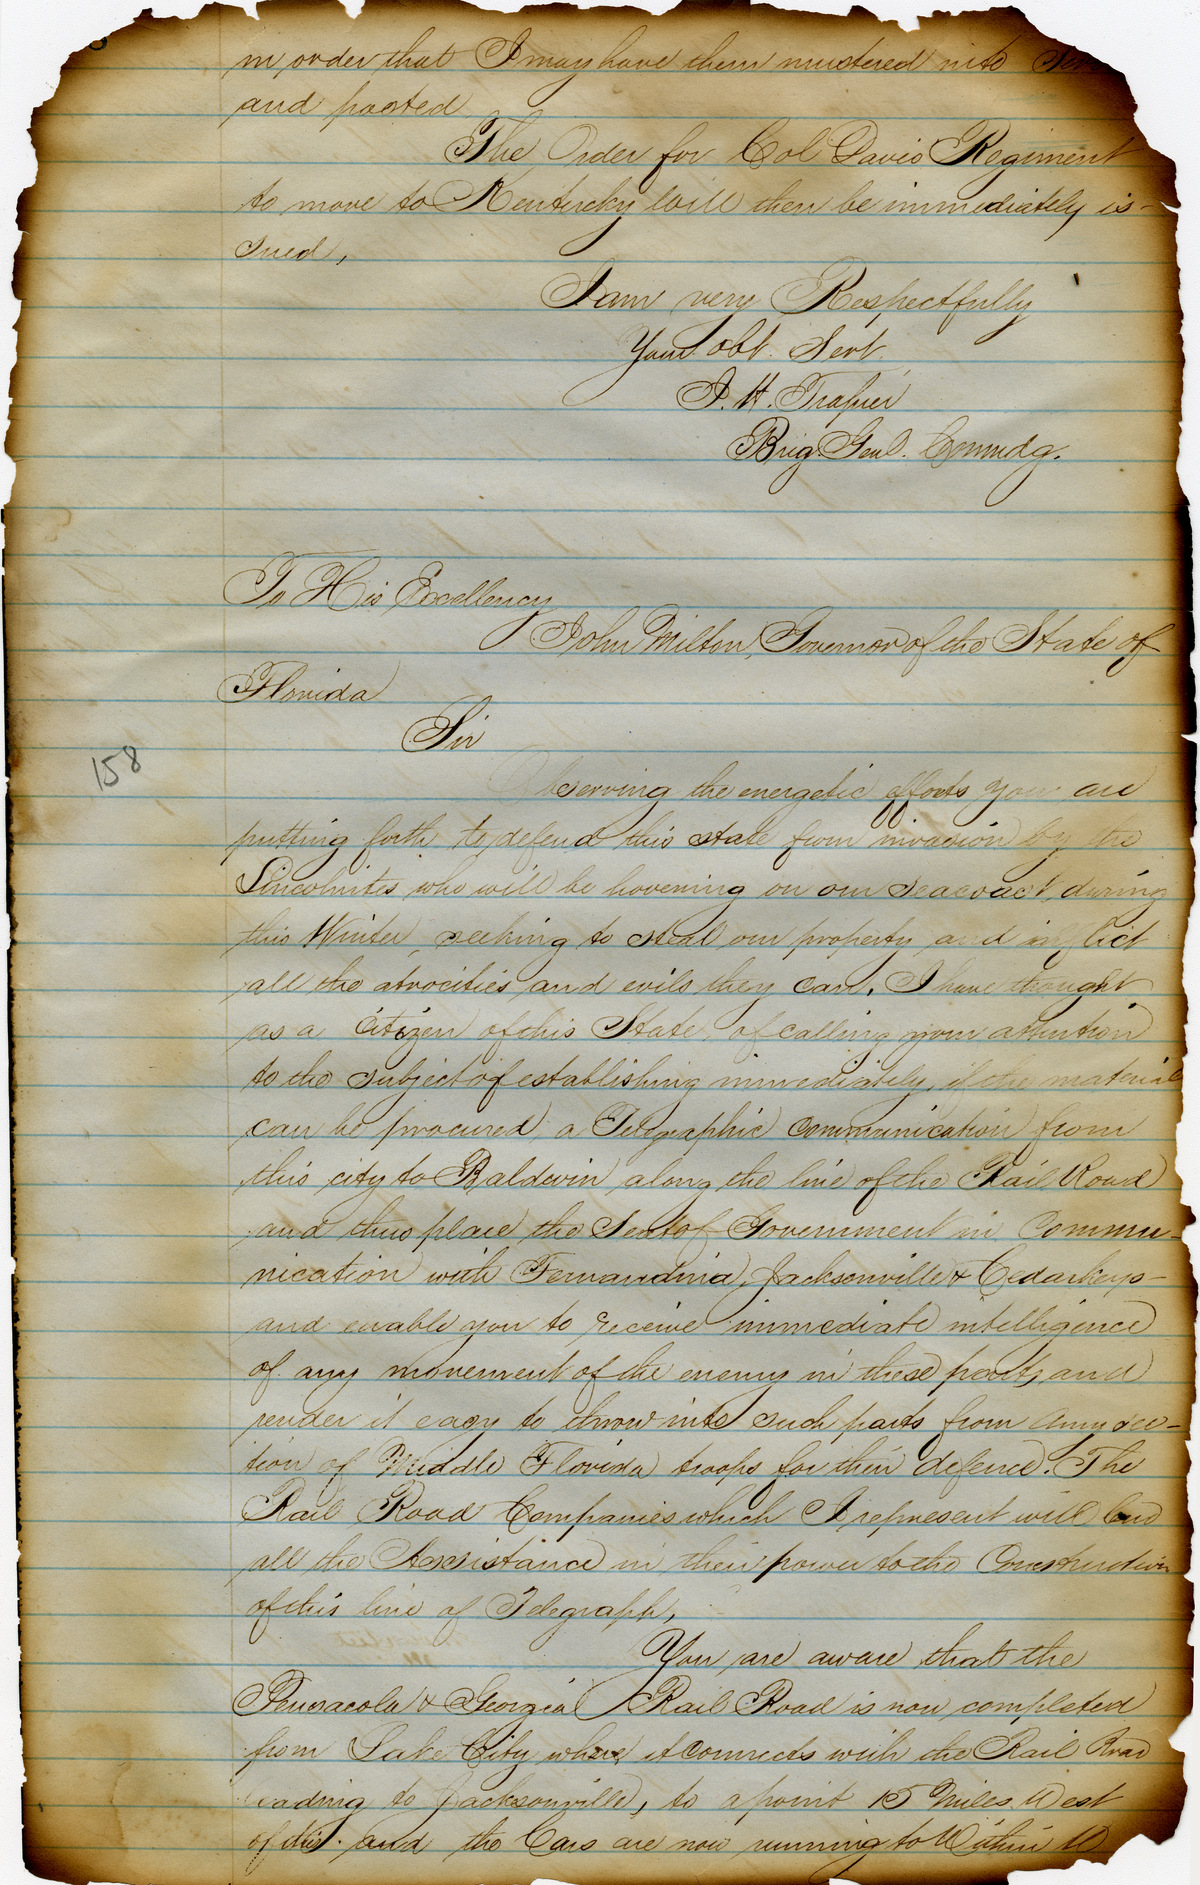 in order that I may have them mustered into
and posted
The Order for Col Davis Regiment
to move to Kentucky will then be immediately is-
sued,
I am very Respectfully
Your obt. Servt.
J. H. Trapier
Brig. Genl. Commdg.
To His Excellency
John Milton, Governor of the State of
Florida
Sir
158
Observing the energetic efforts you are
putting forth to defend this state from invasion by the
Lincolnites who will be hovering on our seacoast during
this Winter seeking to steal our property and inflict
all the atrocities and evils they can, I have thought
as a Citizen of this State, of calling your attention
to the subject of establishing immediately, if the material
can be procured, a Telegraphic Communication from
this city to Baldwin along the line of the Rail Road
and thus place the Seat of Government in Commu-
nication with Fernandina, Jacksonville & Cedarkeys-
and enable you to receive immediate intelligence
of any movement of the enemy in these parts, and
render it easy to throw into such parts from any sec-
tion of Middle Florida troops for their defence. The
Rail Road Companies which I represent will lend
all the Assistance in their power to the Construction
of this line of Telegraph,
You are aware that the
Pensacola & Georgia Rail Road is now completed
from Lake City where it connects with the Rail Road
leading to Jacksonville, to a point 15 Miles West
of this. and the Cars are now running to Within